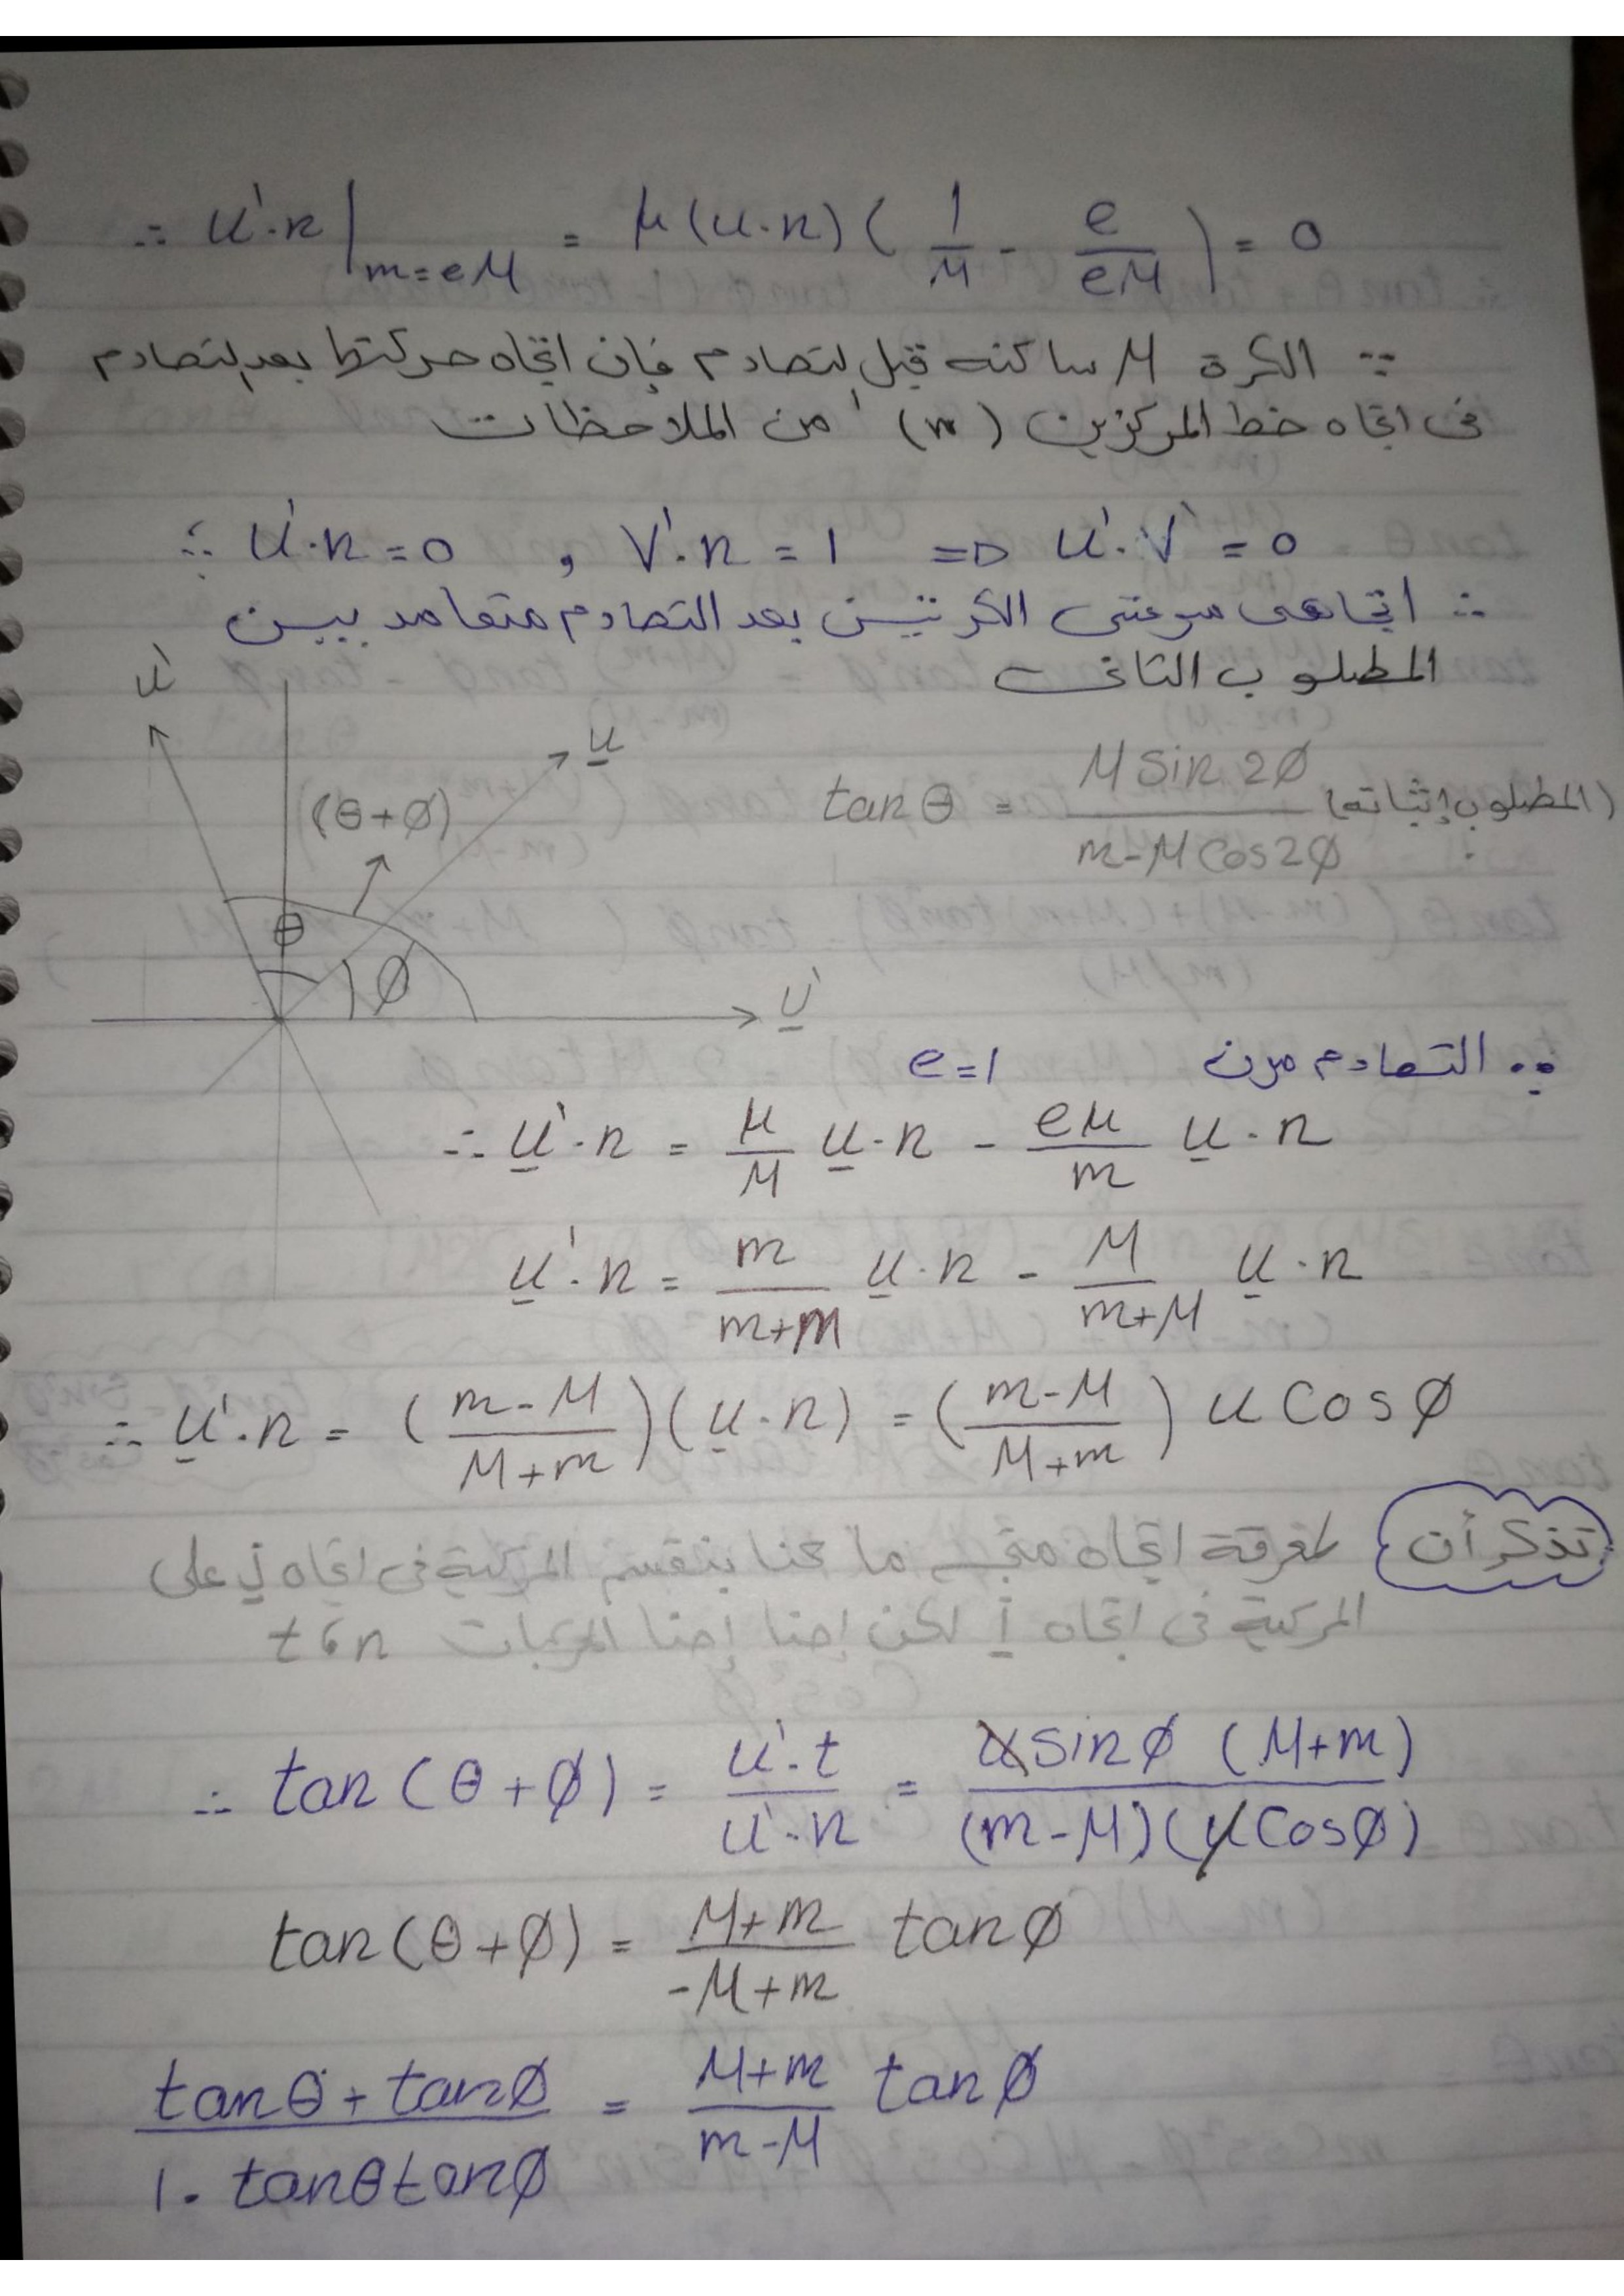 ∴ u'·n |_{m=eM} = μ(u·n)( 1/M - e/eM ) = 0
∵ الكرة M ساكنه قبل لتصادم فإن اتجاه حركتها بعد لتصادم
فى اتجاه خط المركزين (n) من الملاحظات
∴ u'·n = 0 , V'·n = 1 => u'·V' = 0
∴ اتجاهى سرعتى الكرتين بعد التصادم متعامد يبين
المطلوب الثانى
u'
u
tanθ = M Sin 2ø / m-M Cos2ø (المطلوب إثباته)
(θ+ø)
θ
ø
∵ التصادم مرن e=1
∴ u'·n = μ/M u·n - eμ/m u·n
u'·n = m/m+M u·n - M/m+M u·n
∴ u'·n = (m-M/M+m)(u·n) = (m-M/M+m) u Cosø
تذكر أن لمعرفة اتجاه متجه ما كنا بنقسم المركبة فى اتجاه j على
المركبة فى اتجاه i لكن إحنا المركبات n، t
∴ tan(θ+ø) = u'·t/u'·n = u sinø (M+m)/(m-M)(u Cosø)
tan(θ+ø) = M+m/-M+m tanø
tanθ + tanø/1 - tanθ tanø = M+m/m-M tanø